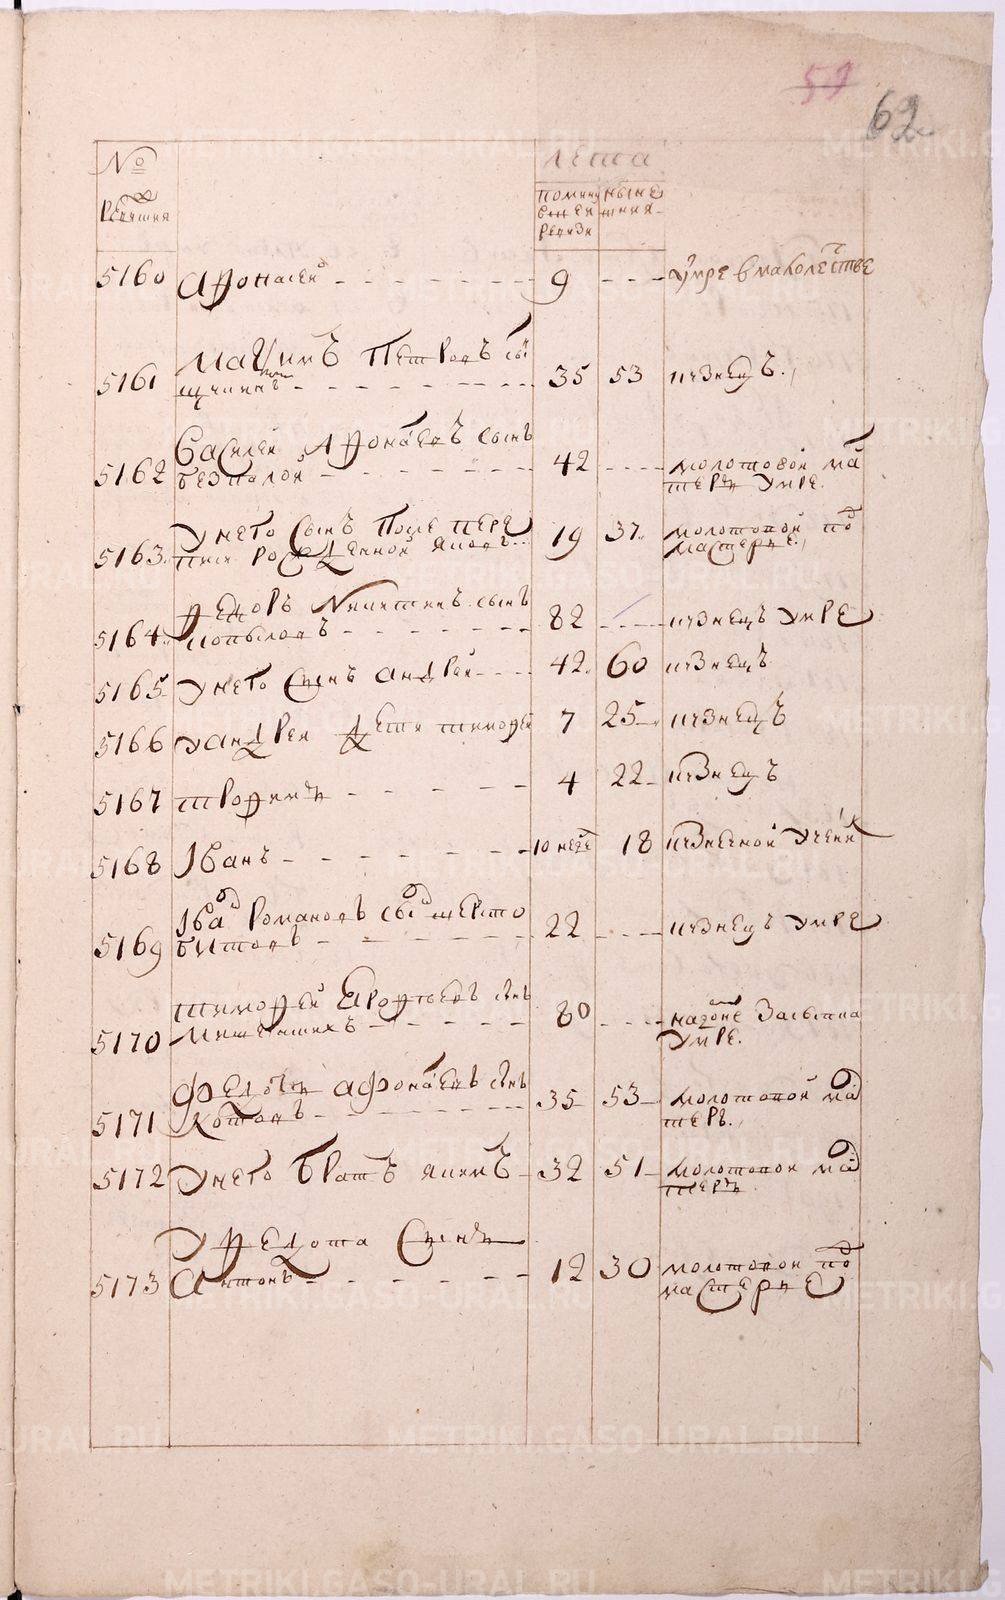 59
62
№
ревизии
лета
помину
вшей
ревизи
ныне
шния
5160 Афонасеи 9 умре вмалолетстве
5161 Максимъ Петровъ сынъ
35 53 кузнецъ
5162 Василеи Афонаевъ сынъ
беспалой 42 молотовой ма
стеръ умре.
5163 Унего сынъ после пере
писи рожденной Яковъ 19 37 молотовой под
мастерье
5164 Федоръ Никитинъ сынъ
копыловъ 82 кузнецъ умре
5165 Унего сынъ андреи 42 60 кузнецъ
5166 Уандрея дети тимофеи 7 25 кузнецъ
5167 трофимъ 4 22 кузнецъ
5168 Iванъ 10 неде 18 кузнечной ученик
5169 Iван Романовъ сын
битовъ 22 кузнецъ умре
5170 тимофеи сынъ
80 засыпка
умре.
5171 Федотъ афонаевъ сынъ
Котовъ 35 53 молотовой ма
стеръ.
5172 Унего братъ якимъ 32 51 молотовой ма
стеръ
5173 У федота сынъ
Антонъ 12 30 молотовой под
мастерье
METRIKI.GASO-URAL.RU